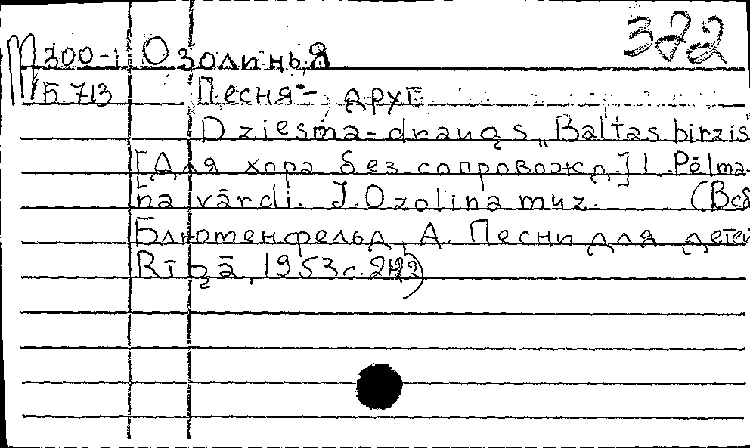 322
М300-1 Озолинь,Я
Б 713 Песня-друг
Dziesma-draugs „Baltas birzis
[Для хора без сопровожд.] I. Pālma-
ņa vārdi. J.Ozoliņa muz. (Всб
Блюменфельд, А. Песни для детей
Rīgā, 1953 с.